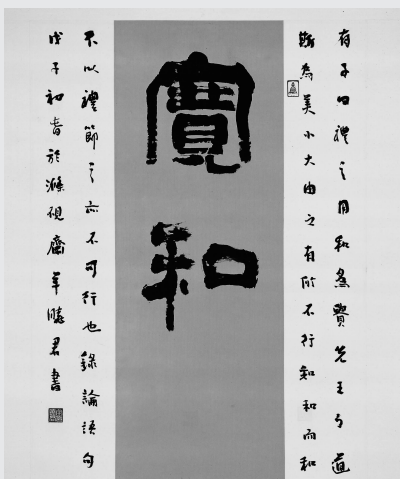 有子曰禮之用和為貴先王之道
斯為美小大由之有所不行知和而和
寬和
不以禮節之亦不可行也錄論語句
戊子初春於滌硯齋羊曉君書